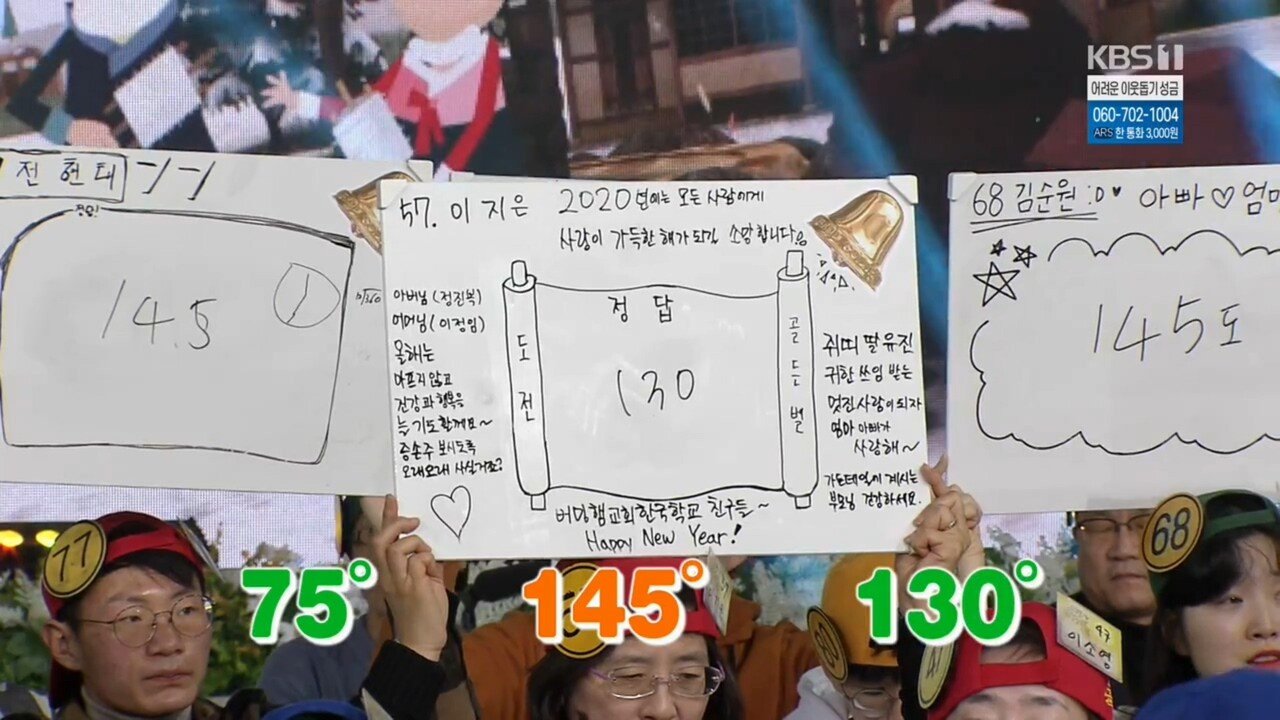 KBS1
어려운 이웃돕기 성금
060-702-1004
ARS 한 통화 3,000원
전현태
정답!
14.5
57. 이지은
2020년에는 모든 사람에게
사랑이 가득한 해가 되길 소망합니다.
아버님(정진복)
어머님(이정임)
올해는
아프지 않고
건강과 행복을
늘 기도할께요~
증손주 보시도록
오래오래 사실거죠?
도전
정답
130
골든벨
쥐띠 딸 유진
귀한 쓰임 받는
멋진사람이 되자
엄마 아빠가
사랑해~
계시는
부모님 건강하세요.
버밍햄교회한국학교 친구들~
Happy New Year!
68 김순원 :D ♥ 아빠♡엄마
145도
77
75°
145°
130°
68
47
이소영